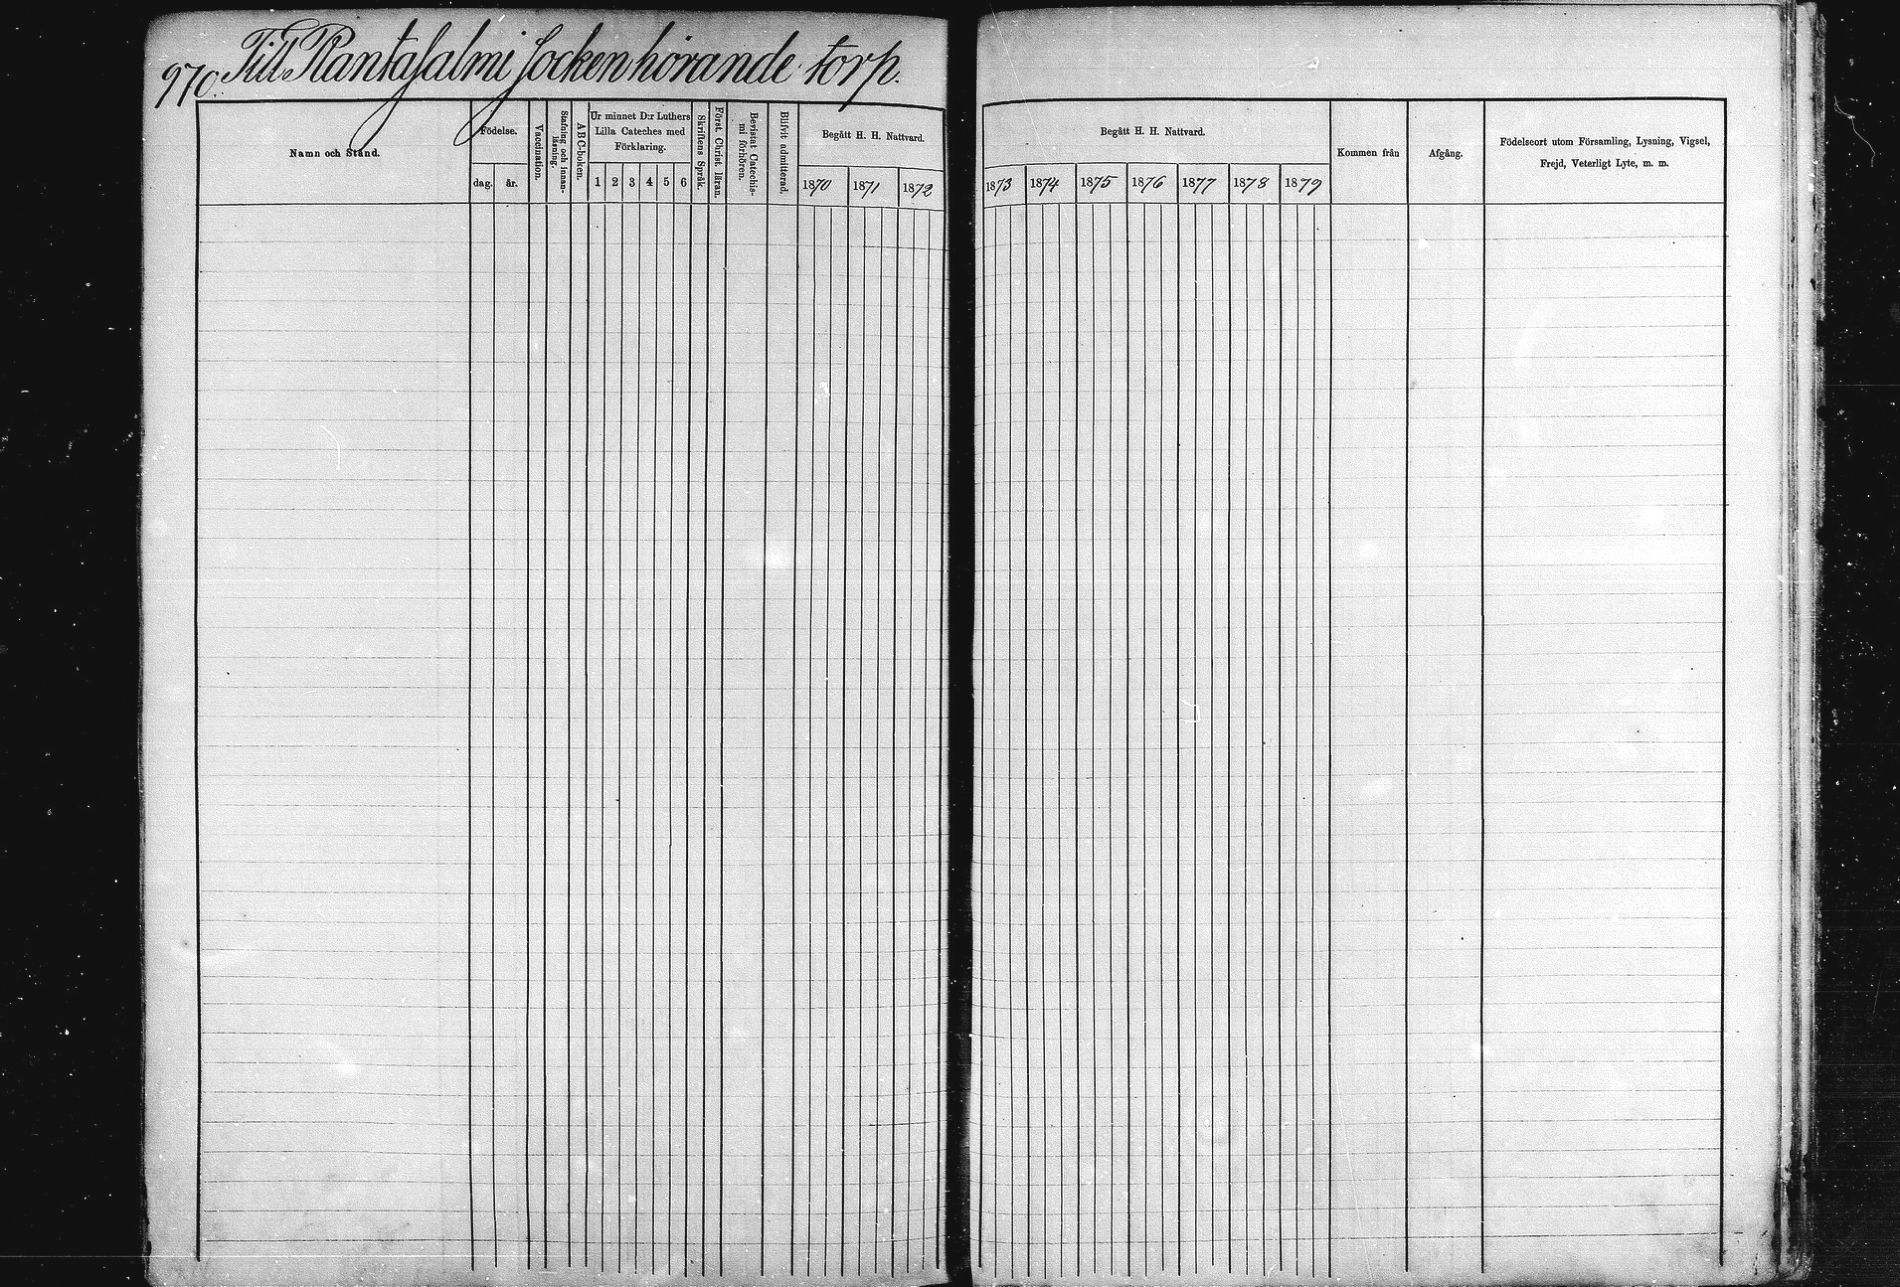 970. Till Rantasalmi socken hörande torp.
Namn och Stånd.
Födelse.
dag.
år.
Vaccination.
Stafning och innan-
läsning.
ABC-boken.
Ur minnet D:r Luthers
Lilla Cateches med
Förklaring.
1 2 3 4 5 6
Skriftens Språk.
Först. Christ. läran.
Bevistat Catechis-
mi förhören.
Blifvit admitterad.
Begått H. H. Nattvard.
1870 1871 1872
Begått H. H. Nattvard.
1873 1874 1875 1876 1877 1878 1879
Kommen från
Afgång.
Födelseort utom Församling, Lysning, Vigsel,
Frejd, Veterligt Lyte, m. m.